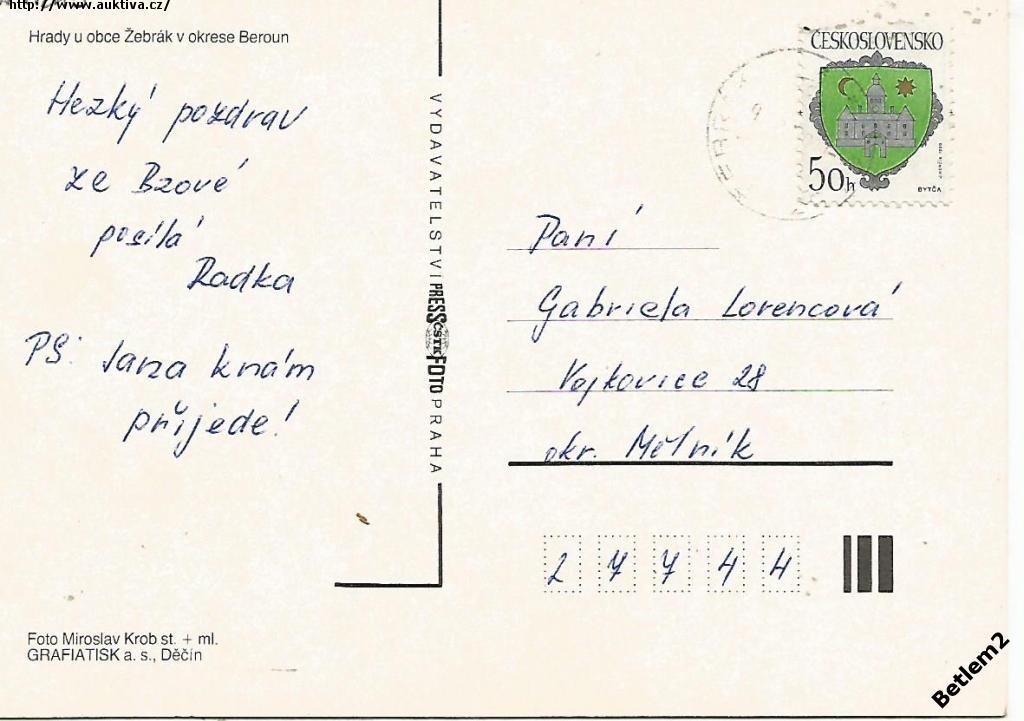 http://www.auktiva.cz/
Hrady u obce Žebrák v okrese Beroun
Hezký pozdrav
ze Bzové
posílá
Radka
PS: Jana knám
přijede!
VYDAVATELSTVÍ PRESSFOTO PRAHA
ČSTK
ČESKOSLOVENSKO
50h
BYTČA
Paní
Gabriela Lorencová
Vojkovice 28
okr. Mělník
27744
Foto Miroslav Krob st. + ml.
GRAFIATISK a. s., Děčín
Betlem2